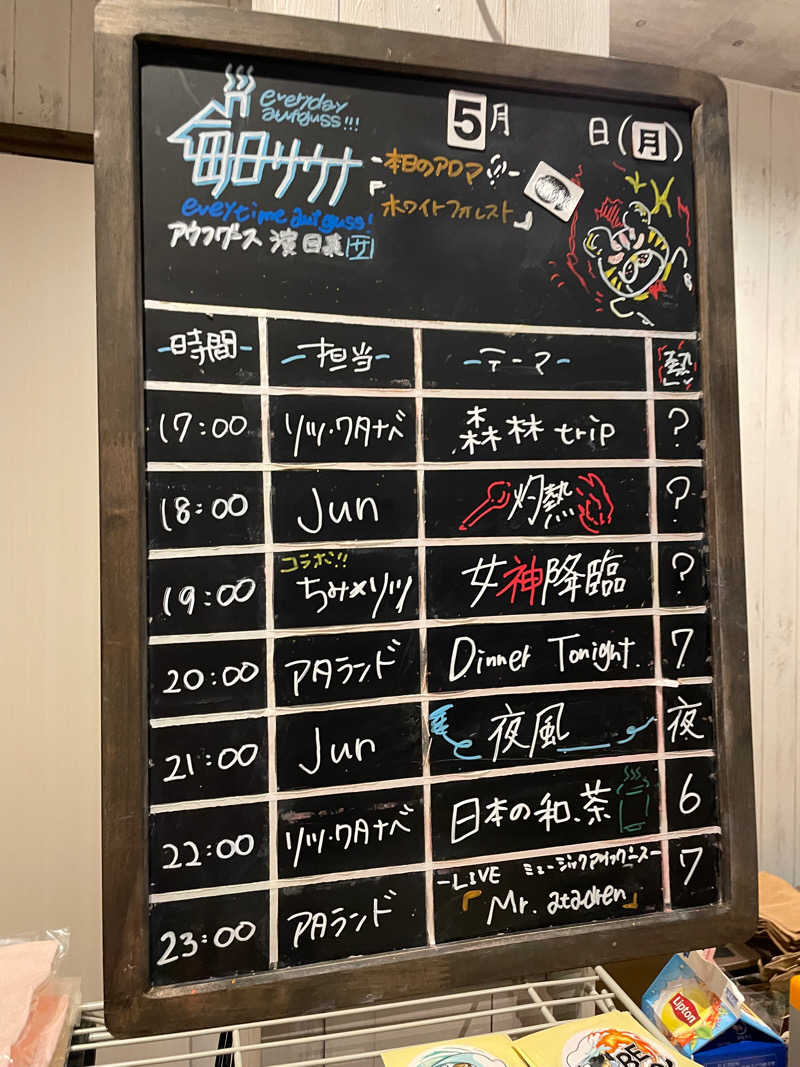 everyday
aufguss!!!
毎日サウナ
everytime aufguss!
アウフグース 演目表 サ
5月 日(月)
-本日のアロマ!!-
『ホワイトフォレスト』
-時間- -担当- -テーマ- 熱
17:00 リツ・ワタナベ 森林 trip ?
18:00 Jun 灼熱 ?
コラボ!!
19:00 ちみ×リツ 女神降臨 ?
20:00 アタランド Dinner Tonight. 7
21:00 Jun 夜風 夜
22:00 リツ・ワタナベ 日本の和.茶 6
-LIVE ミュージックアウフグース-
23:00 アタランド 『Mr. atadren』 7
Lipton